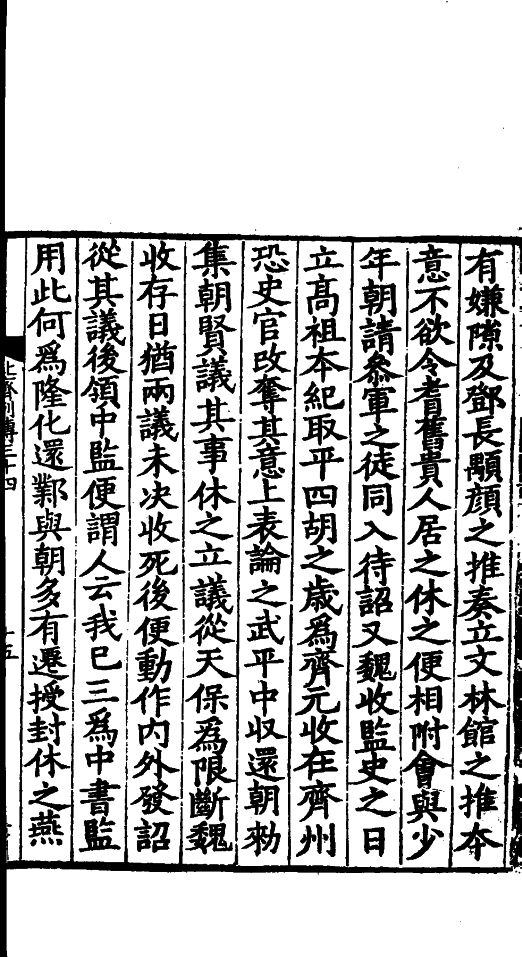 有嫌隙及鄧長顒顔之推奏立文林館之推本
意不欲令耆舊貴人居之休之便相附會與少
年朝請叅軍之徒同入待詔又魏收監史之日
立髙祖本紀取平四胡之歳爲齊元收在齊州
恐史官改奪其意上表論之武平中収還朝勑
集朝賢議其事休之立議從天保爲限斷魏
收存日猶兩議未决收死後便動作内外發詔
從其議後領中監便謂人云我已三爲中書監
用此何爲隆化還鄴與朝多有遷授封休之燕
北齊列傳三十四
十五